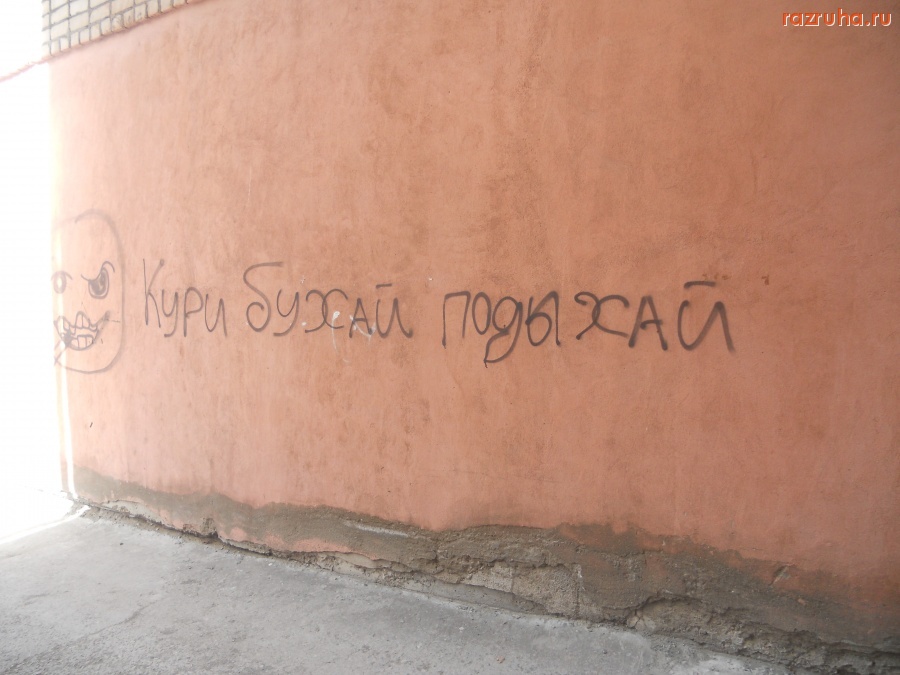 razruha.ru
Кури Бухай подыхай